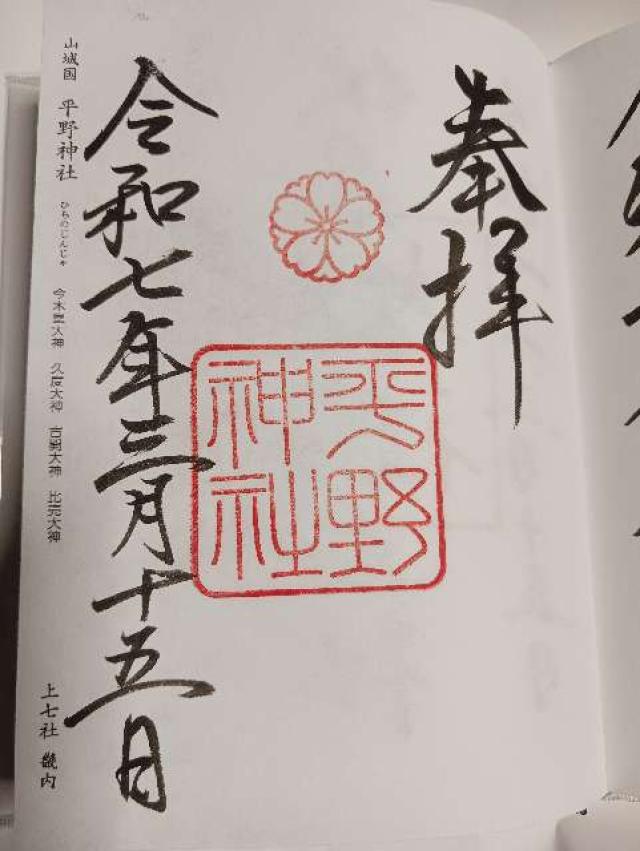 奉拝
平野
神社
令和七年三月十五日
山城国 平野神社 ひらのじんじゃ 今木皇大神 久度大神 古開大神 比売大神
上七社 畿内